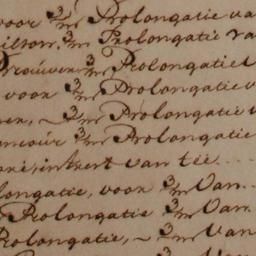 voor 3/m Prolongatie va
3/m Prolongatie va
Vrouwen 3/m Prolongatie
voor 3/m Prolongatie v
en, ~ 3/m Prolongatie v
3/m Prolongatie
in kert van tie....
longatie, voor 3/m Van..
Prolongatie 3/m Van.
Prolongatie, ~ 3/m Van